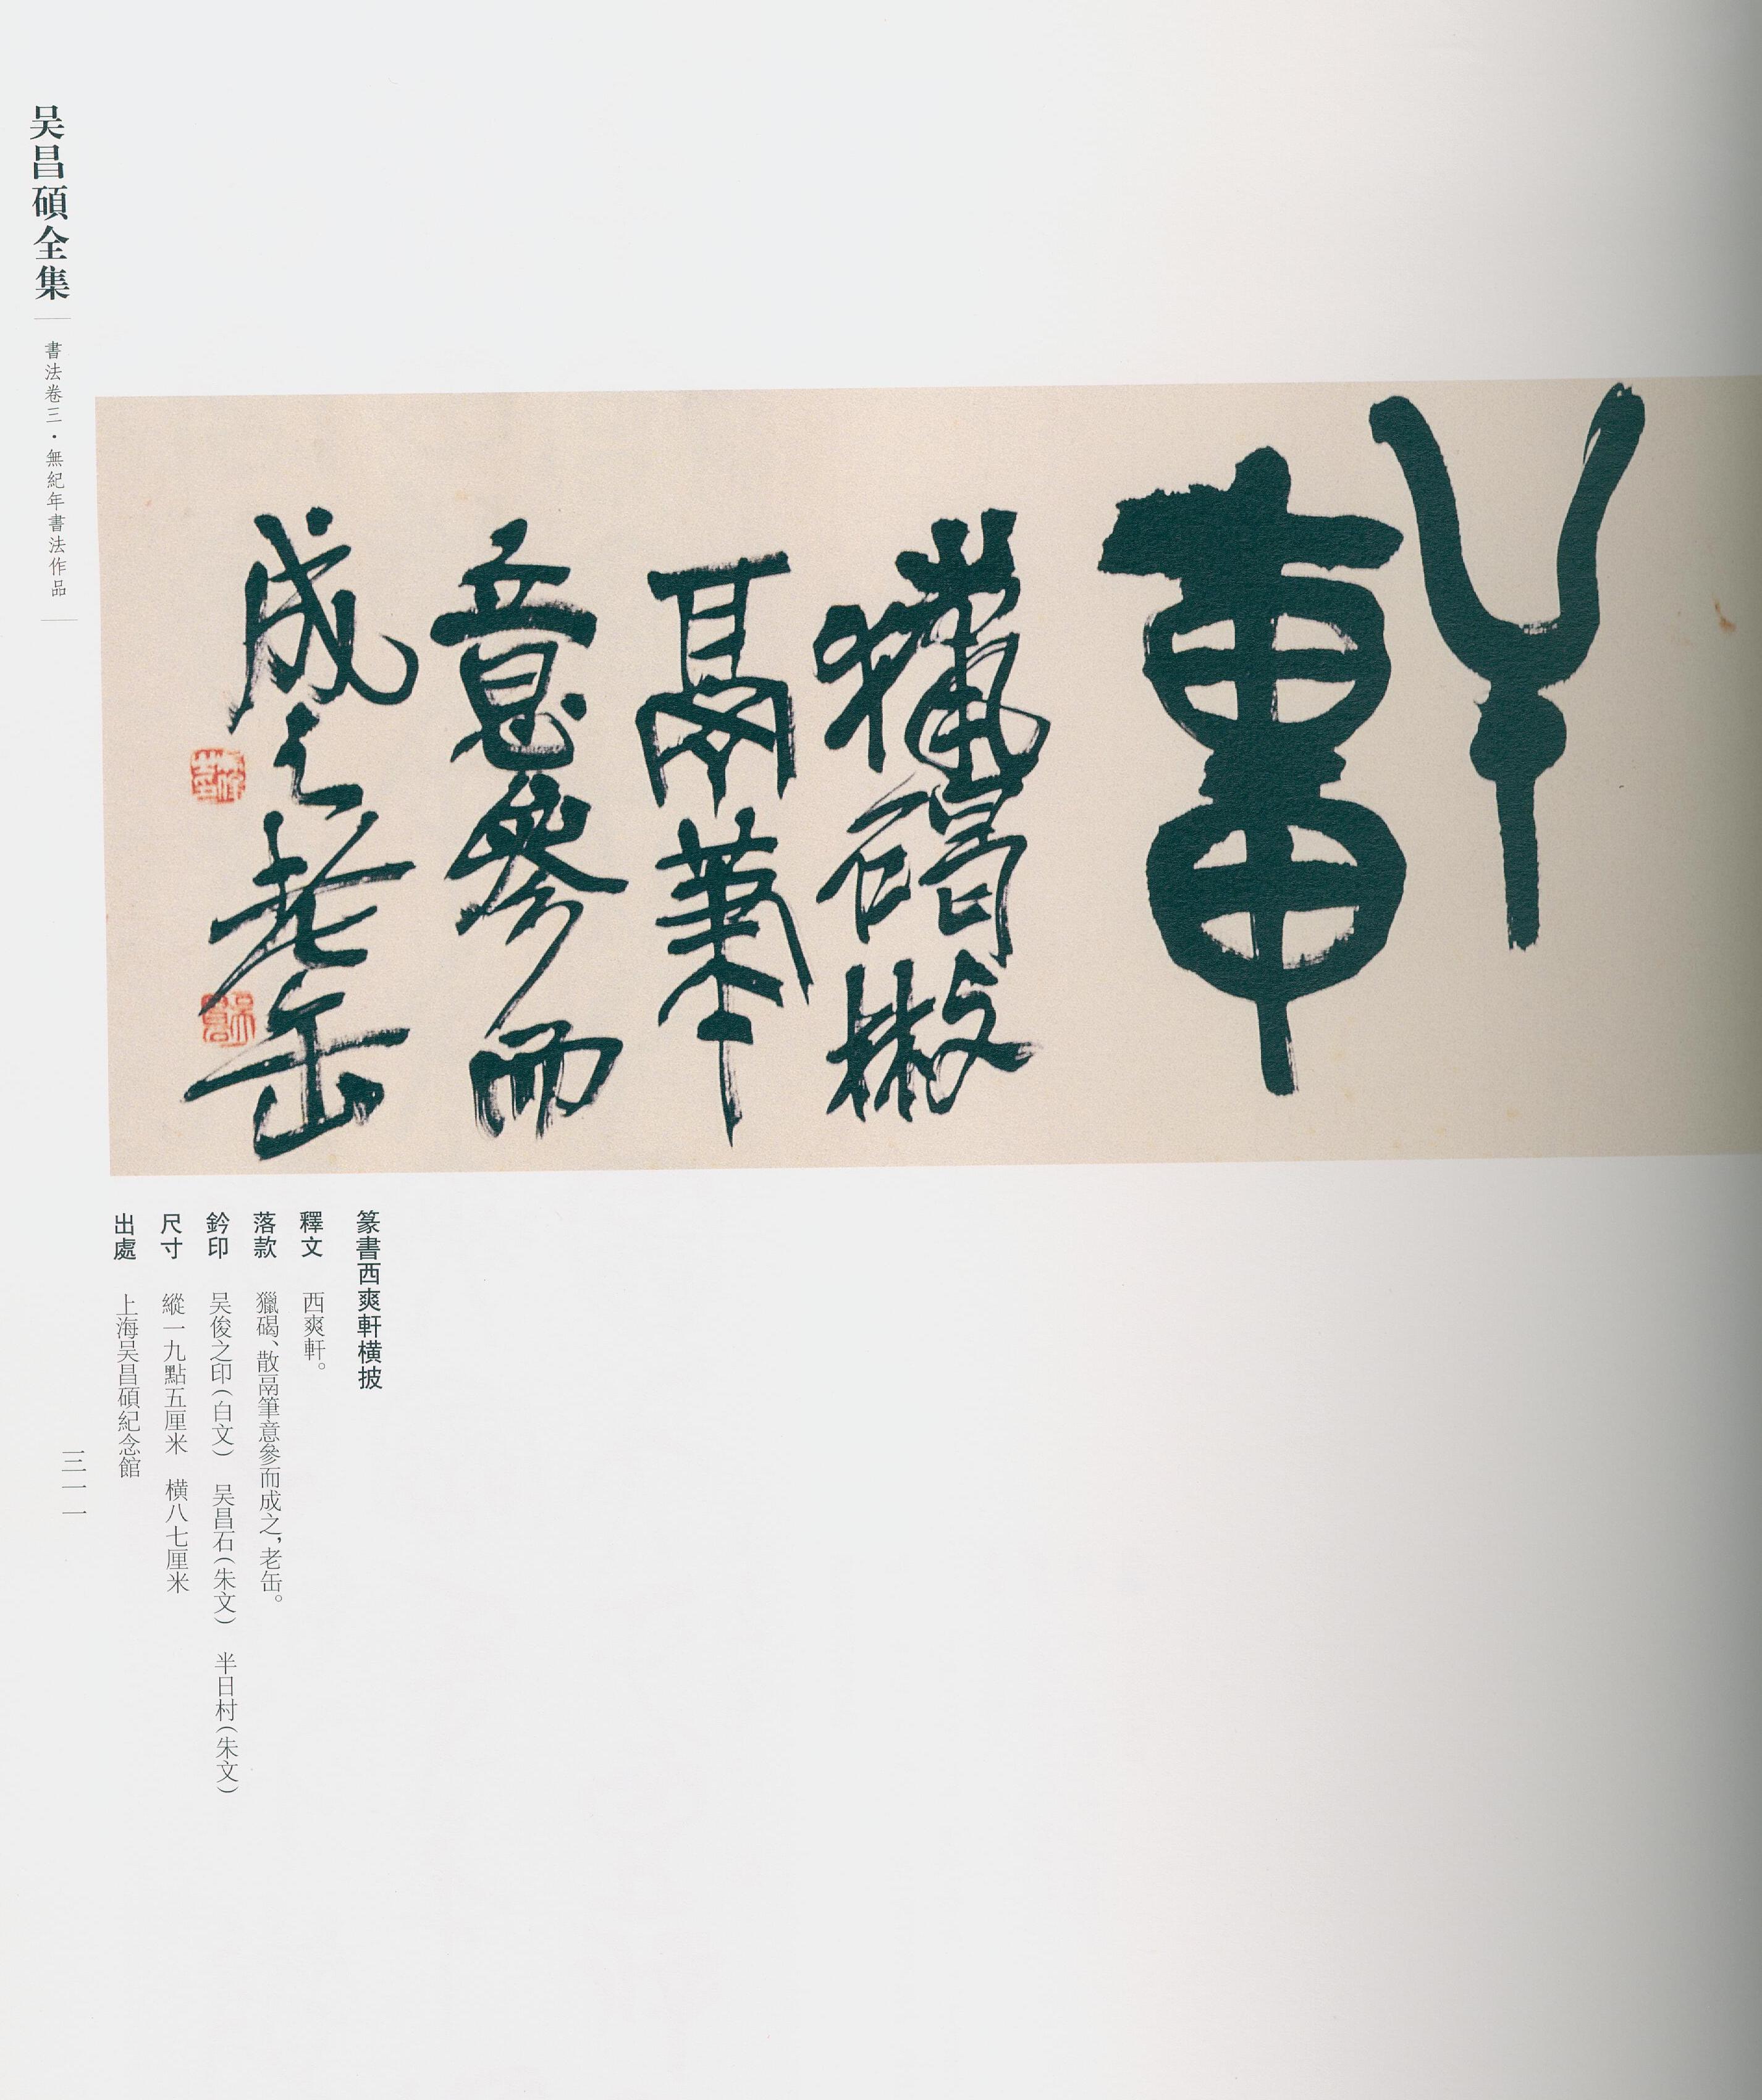 軒
獵碣㪔
鬲筆
意參而
成之老缶
篆書西爽軒橫披
釋文 西爽軒。
落款 獵碣、散鬲筆意參而成之，老缶。
鈐印 吴俊之印（白文） 吴昌石（朱文） 半日村（朱文）
尺寸 縱一九點五厘米 橫八七厘米
出處 上海吴昌碩紀念館
吴昌碩全集
書法卷三·無紀年書法作品
三一一